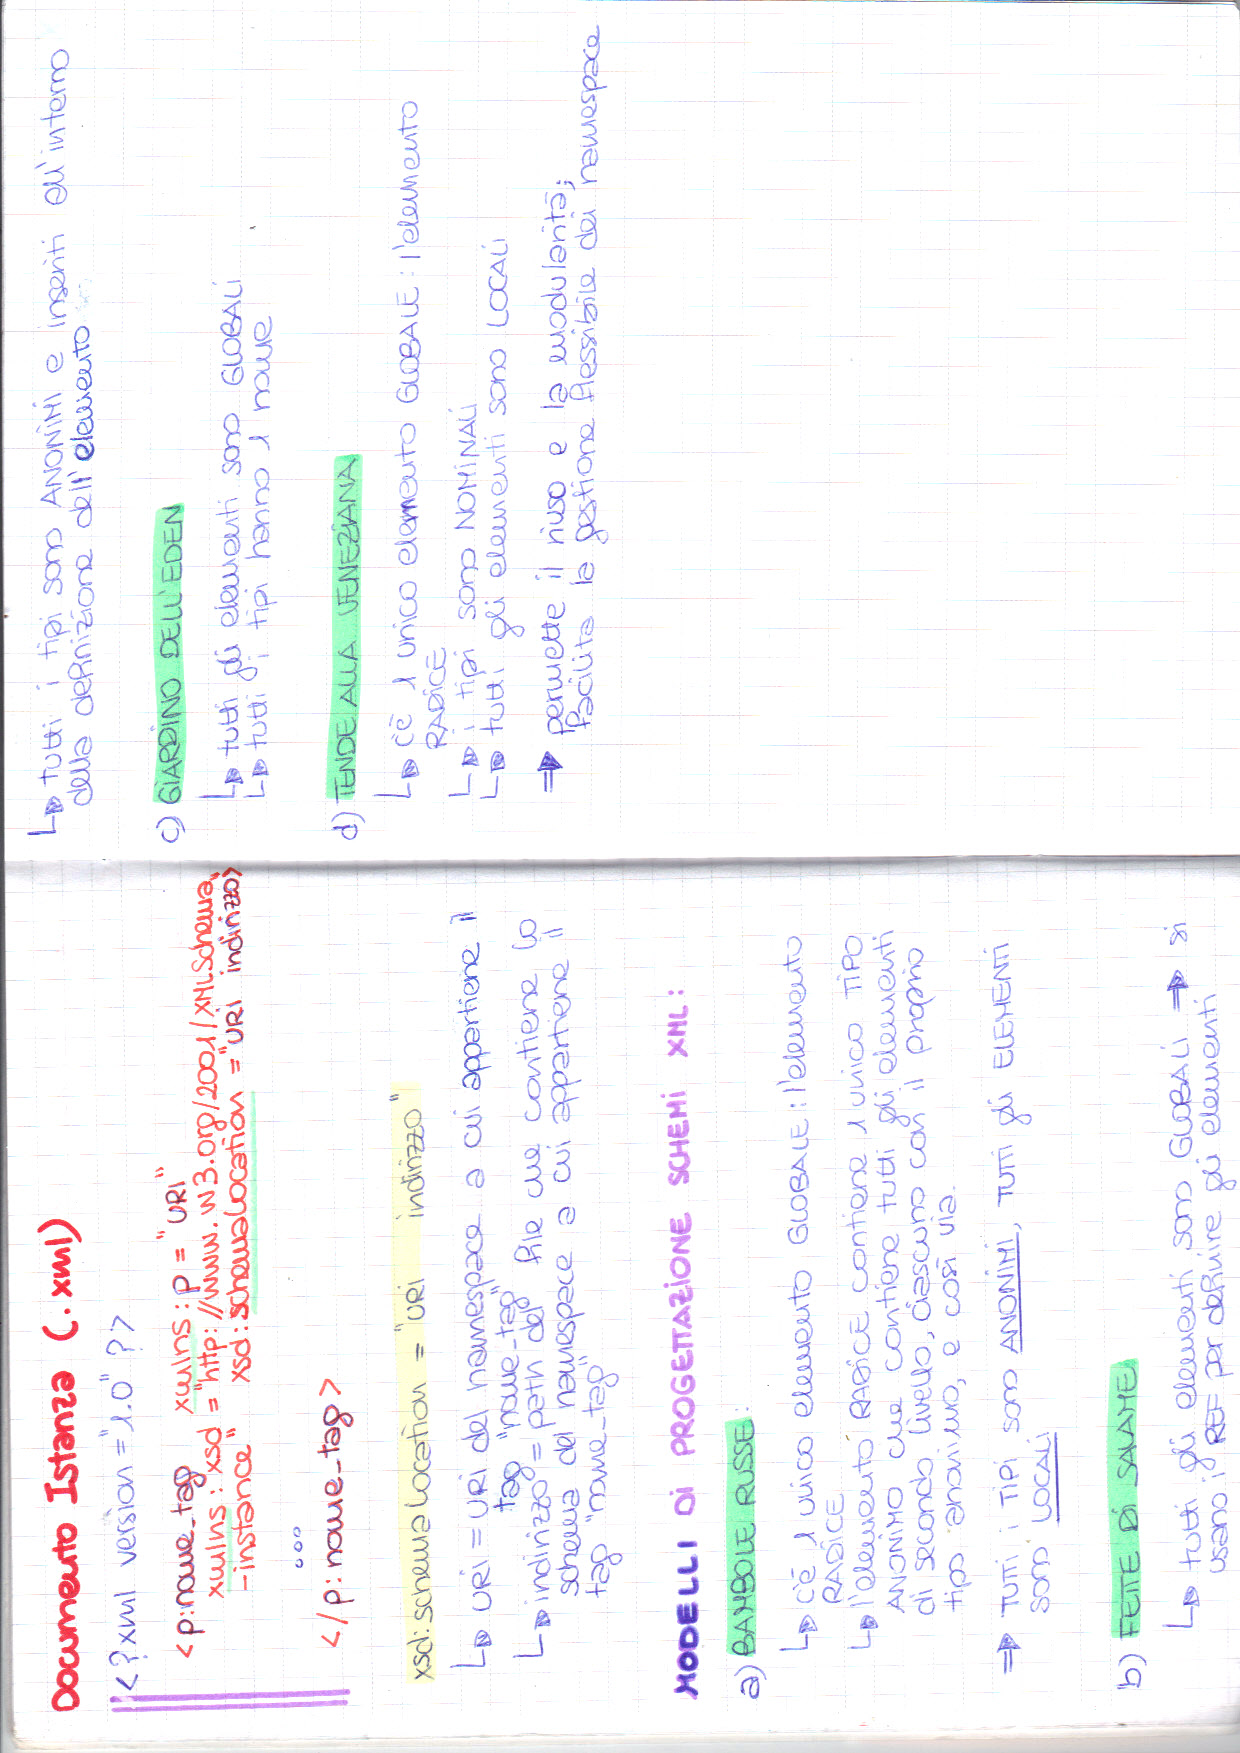 Documento Istanza (.xml)
<?xml version="1.0"?>
<p:nome_tag xmlns:p="URI"
xmlns:xsd="http://www.w3.org/2001/XMLSchema
-instance" xsd:schemaLocation="URI indirizzo">
...
</p:nome_tag>
xsd:schemaLocation="URI indirizzo"
↳ URI = URI del namespace a cui appartiene il
tag "nome_tag"
↳ indirizzo = path del file che contiene lo
schema del namespace a cui appartiene il
tag "nome_tag"
MODELLI DI PROGETTAZIONE SCHEMI XML:
a) BAMBOLE RUSSE:
↳ c'è 1 unico elemento GLOBALE: l'elemento
RADICE
↳ l'elemento RADICE contiene 1 unico TIPO
ANONIMO che contiene tutti gli elementi
di secondo livello, ciascuno con il proprio
tipo anonimo, e così via.
⇒ TUTTI i TIPI sono ANONIMI, TUTTI gli ELEMENTI
sono LOCALI
b) FETTE DI SALAME
↳ tutti gli elementi sono GLOBALI ⇒ si
usano i REF per definire gli elementi
↳ tutti i tipi sono ANONIMI e inseriti all'interno
della definizione dell'elemento
c) GIARDINO DELL'EDEN
↳ tutti gli elementi sono GLOBALI
↳ tutti i tipi hanno 1 nome
d) TENDE ALLA VENEZIANA
↳ c'è 1 unico elemento GLOBALE: l'elemento
RADICE
↳ i tipi sono NOMINALI
↳ tutti gli elementi sono LOCALI
⇒ permette il riuso e la modularità;
facilita la gestione flessibile dei namespace